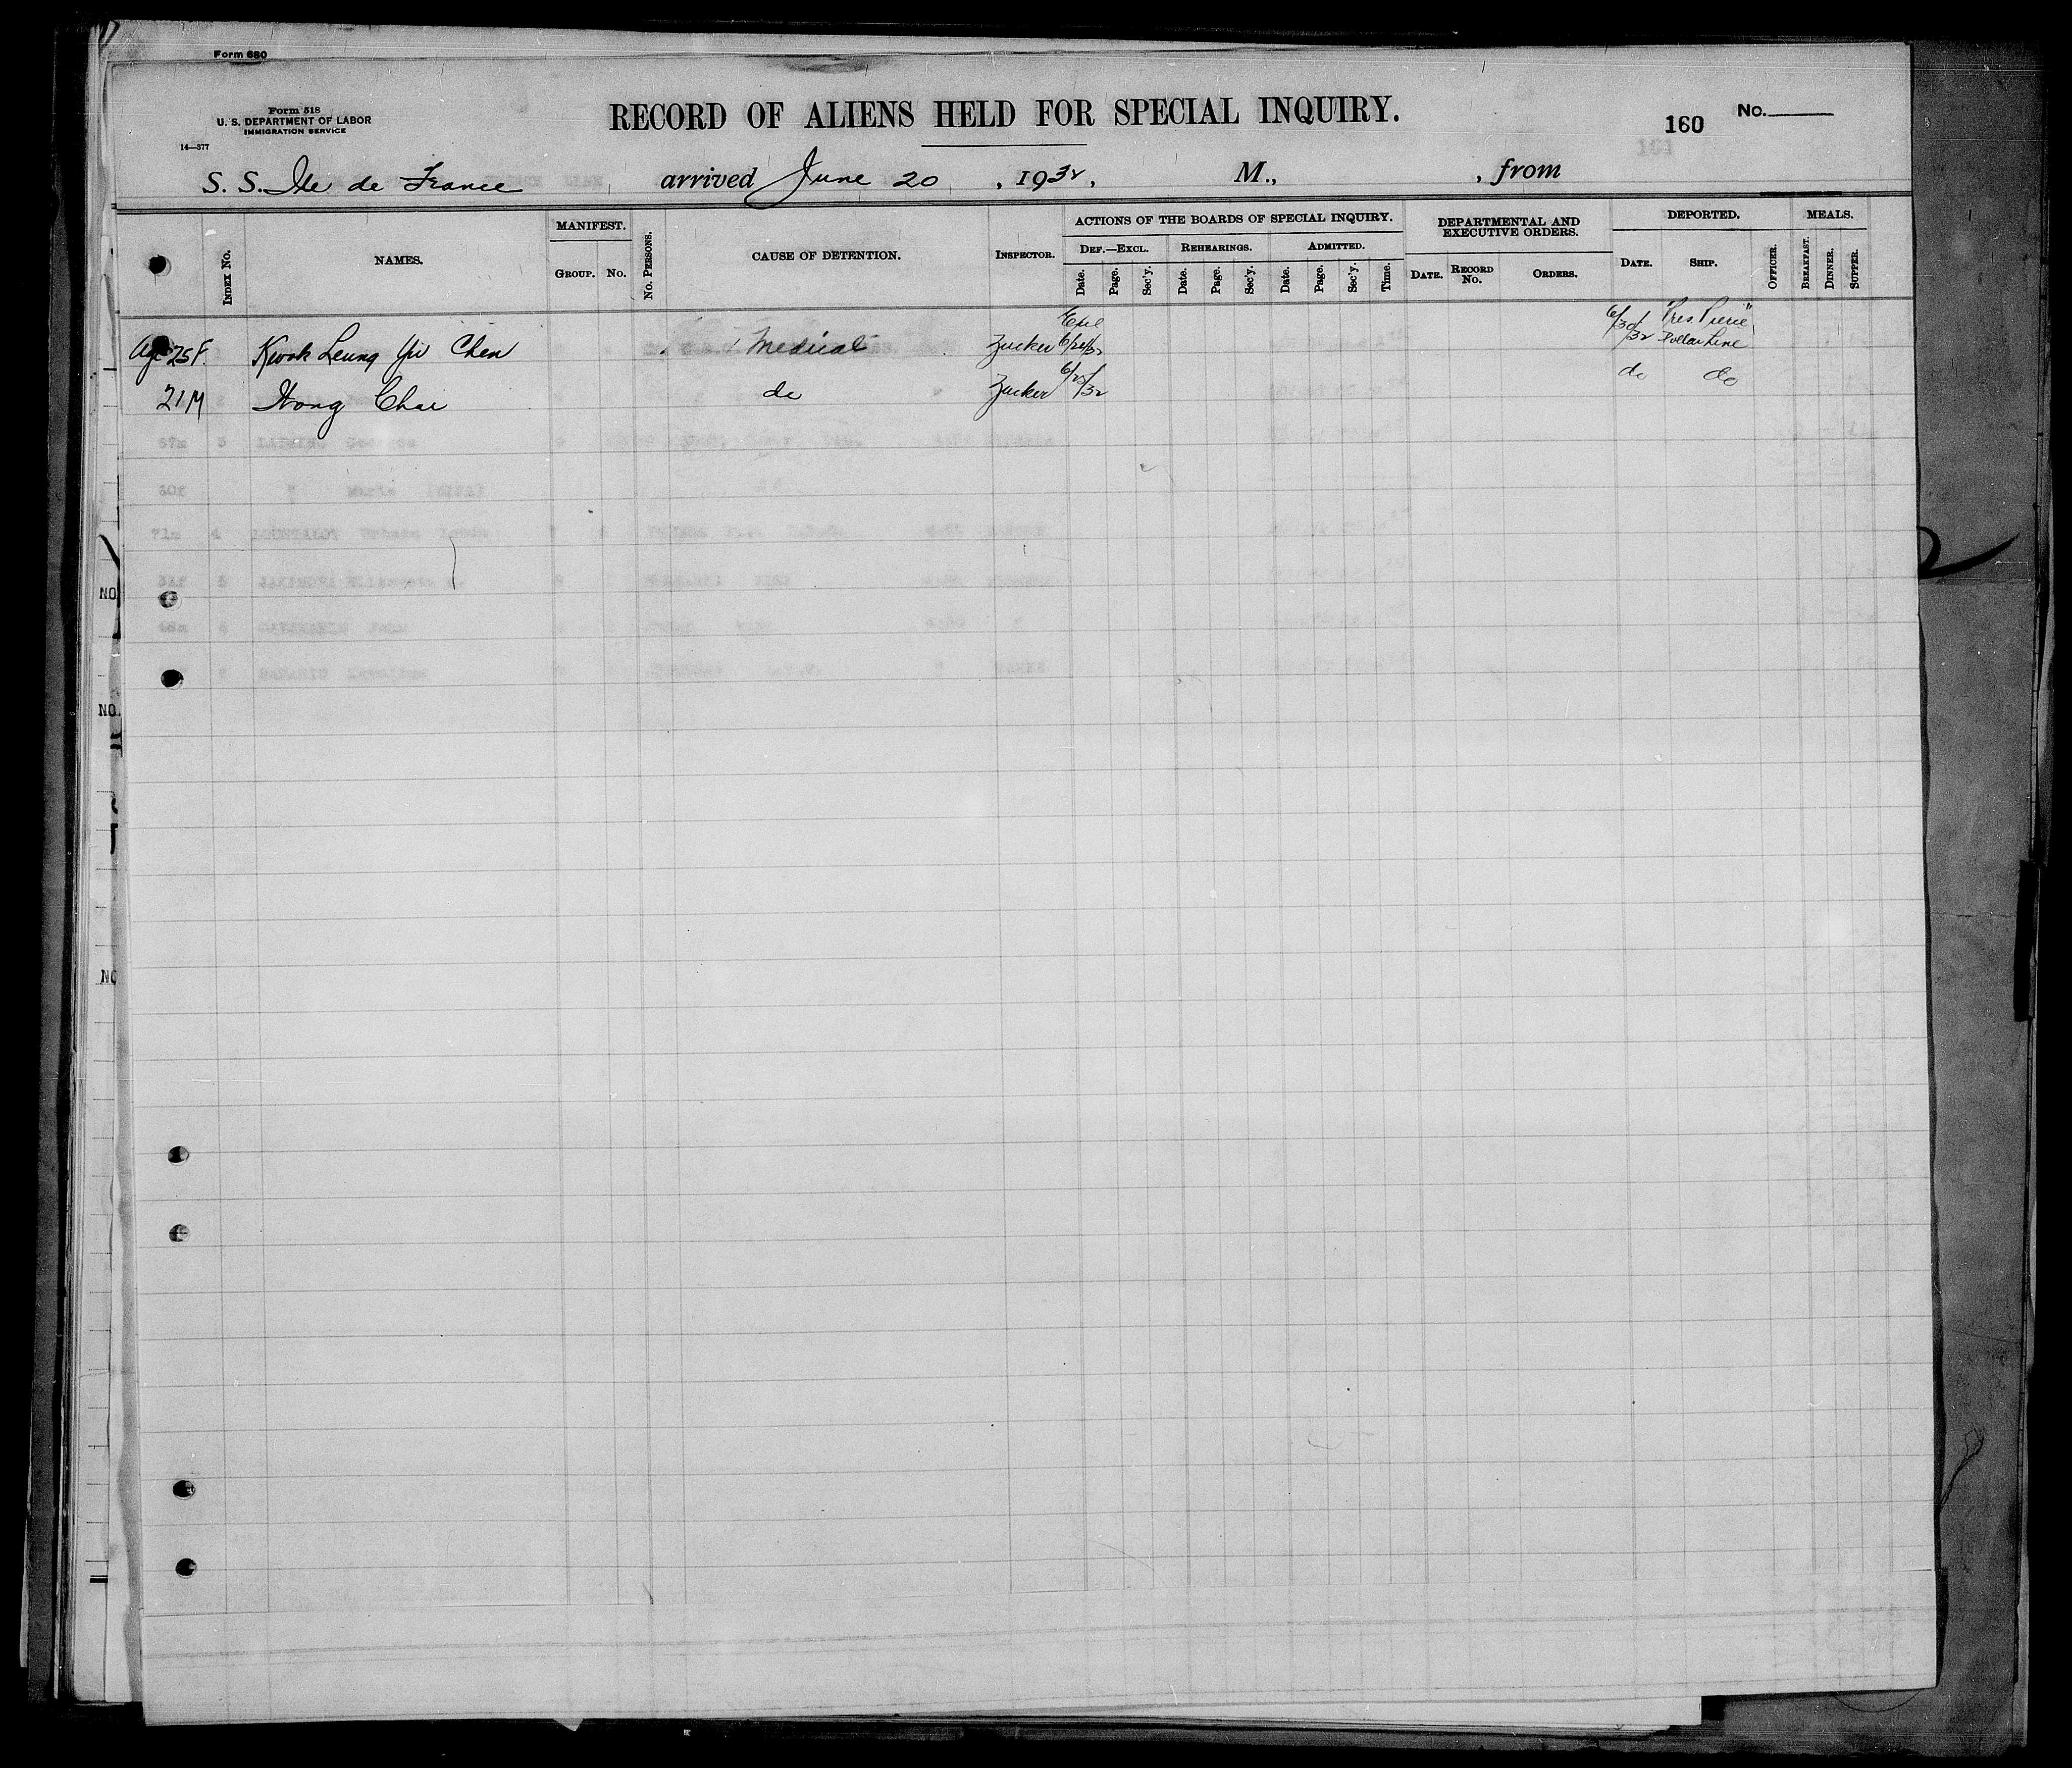 Form 680
Form 518
U. S. DEPARTMENT OF LABOR
IMMIGRATION SERVICE
14—377
RECORD OF ALIENS HELD FOR SPECIAL INQUIRY.
160
No.
S. S. Ile de France arrived June 20, 1932, M., , from
INDEX No.
NAMES.
MANIFEST.
GROUP. No.
No. PERSONS.
CAUSE OF DETENTION.
INSPECTOR.
ACTIONS OF THE BOARDS OF SPECIAL INQUIRY.
DEF.—EXCL. REHEARINGS. ADMITTED.
Date. Page. Sec'y. Date. Page. Sec'y. Date. Page. Sec'y. Time.
DEPARTMENTAL AND
EXECUTIVE ORDERS.
DATE. RECORD No. ORDERS.
DEPORTED.
DATE. SHIP. OFFICER.
MEALS.
BREAKFAST. DINNER. SUPPER.
Age 25 F. Kwok Leung Yu Chen Medical Zucker 6/30/32 "Pres. Pierce" Dollar Line
21 M Chai do Zucker 6/25/32 do do
NO
NO.
NO